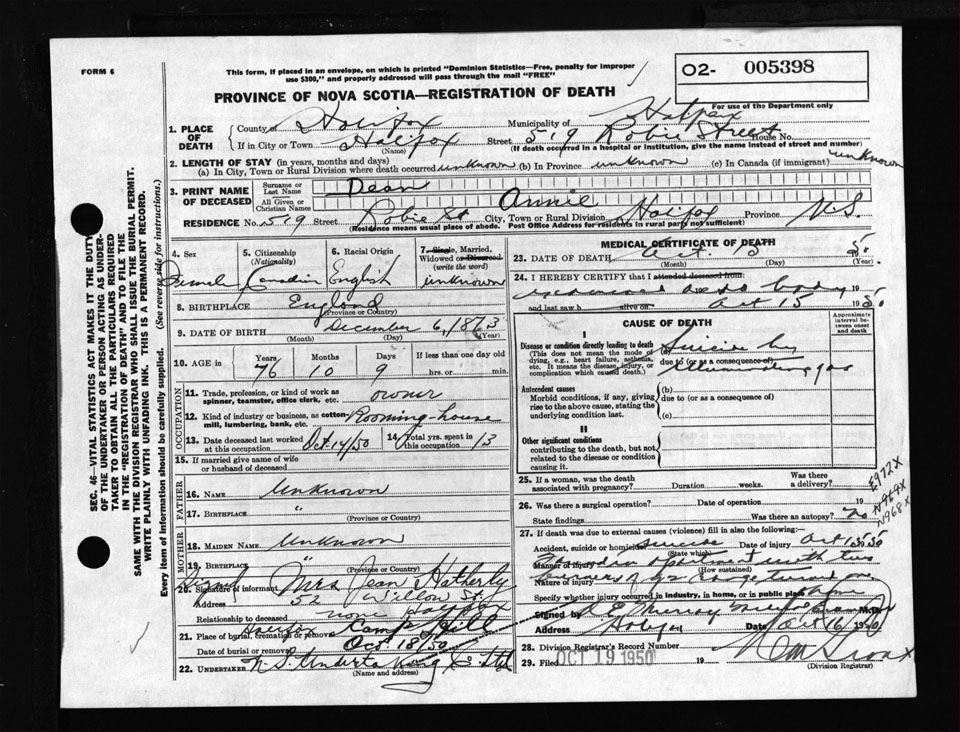 FORM 6
This form, if placed in an envelope, on which is printed "Dominion Statistics—Free, penalty for improper
use $300," and properly addressed will pass through the mail "FREE"
O2- 005398
For use of the Department only
PROVINCE OF NOVA SCOTIA—REGISTRATION OF DEATH
1. PLACE OF DEATH
County of Halifax Municipality of Halifax
If in City or Town Halifax Street 519 Robie Street House No.
(Name) (If death occurred in a hospital or institution, give the name instead of street and number)
2. LENGTH OF STAY (in years, months and days)
(a) In City, Town or Rural Division where death occurred unknown (b) In Province unknown (c) In Canada (if immigrant) unknown
3. PRINT NAME OF DECEASED
Surname or Last Name Dean
All Given or Christian Names Annie
RESIDENCE No. 519 Street Robie St City, Town or Rural Division Halifax Province N.S.
(Residence means usual place of abode. Post Office Address for residents in rural parts not sufficient)
4. Sex Female
5. Citizenship (Nationality) Canadian
6. Racial Origin English
7. Single, Married, Widowed or Divorced (write the word) unknown
8. BIRTHPLACE England
(Province or Country)
9. DATE OF BIRTH December 6, 1873
(Month) (Day) (Year)
10. AGE in Years Months Days If less than one day old
76 10 9 hrs. or min.
OCCUPATION
11. Trade, profession, or kind of work as spinner, teamster, office clerk, etc. owner
12. Kind of industry or business, as cotton-mill, lumbering, bank, etc. Rooming-house
13. Date deceased last worked at this occupation Oct 14/50
14. Total yrs. spent in this occupation 13
15. If married give name of wife or husband of deceased
FATHER
16. NAME Unknown
17. BIRTHPLACE "
(Province or Country)
MOTHER
18. MAIDEN NAME Unknown
19. BIRTHPLACE "
(Province or Country)
20. Signature of informant Signed Mrs Jean Hatherly
Address 52 Willow St. Halifax
Relationship to deceased none
21. Place of burial, cremation or removal Halifax Camp Hill
Date of burial or removal Oct 18/50
22. UNDERTAKER N.S. Undertaking Co. Ltd
(Name and address)
MEDICAL CERTIFICATE OF DEATH
23. DATE OF DEATH Oct. 15 50
(Month) (Day) (Year)
24. I HEREBY CERTIFY that I attended deceased from:
dead body
and last saw h alive on Oct 15 1950
I
CAUSE OF DEATH
Approximate interval between onset and death
Disease or condition directly leading to death
(This does not mean the mode of dying, e.g., heart failure, asthenia, etc. It means the disease, injury, or complication which caused death.)
(a) Suicide by
due to (or as a consequence of)
illuminating gas
Antecedent causes
Morbid conditions, if any, giving rise to the above cause, stating the underlying condition last.
(b)
due to (or as a consequence of)
(c)
II
Other significant conditions
contributing to the death, but not related to the disease or condition causing it.
25. If a woman, was the death associated with pregnancy? Duration weeks. Was there a delivery?
26. Was there a surgical operation? Date of operation 19
State findings Was there an autopsy? No
E972X
N969X
N968X
27. If death was due to external causes (violence) fill in also the following:—
Accident, suicide or homicide suicide Date of injury Oct 15 1950
(State which)
Manner of injury
(How sustained)
Nature of injury
Specify whether injury occurred in industry, in home, or in public place Home
Signed by M.D.
Address Halifax Date Oct 16 1950
28. Division Registrar's Record Number
29. Filed OCT 19 1950 19
(Division Registrar)
SEC. 46—VITAL STATISTICS ACT MAKES IT THE DUTY
OF THE UNDERTAKER OR PERSON ACTING AS UNDER-
TAKER TO OBTAIN ALL THE PARTICULARS REQUIRED
IN THE "REGISTRATION OF DEATH" AND TO FILE THE
SAME WITH THE DIVISION REGISTRAR WHO SHALL ISSUE THE BURIAL PERMIT.
WRITE PLAINLY WITH UNFADING INK. THIS IS A PERMANENT RECORD.
Every item of information should be carefully supplied. (See reverse side for instructions.)